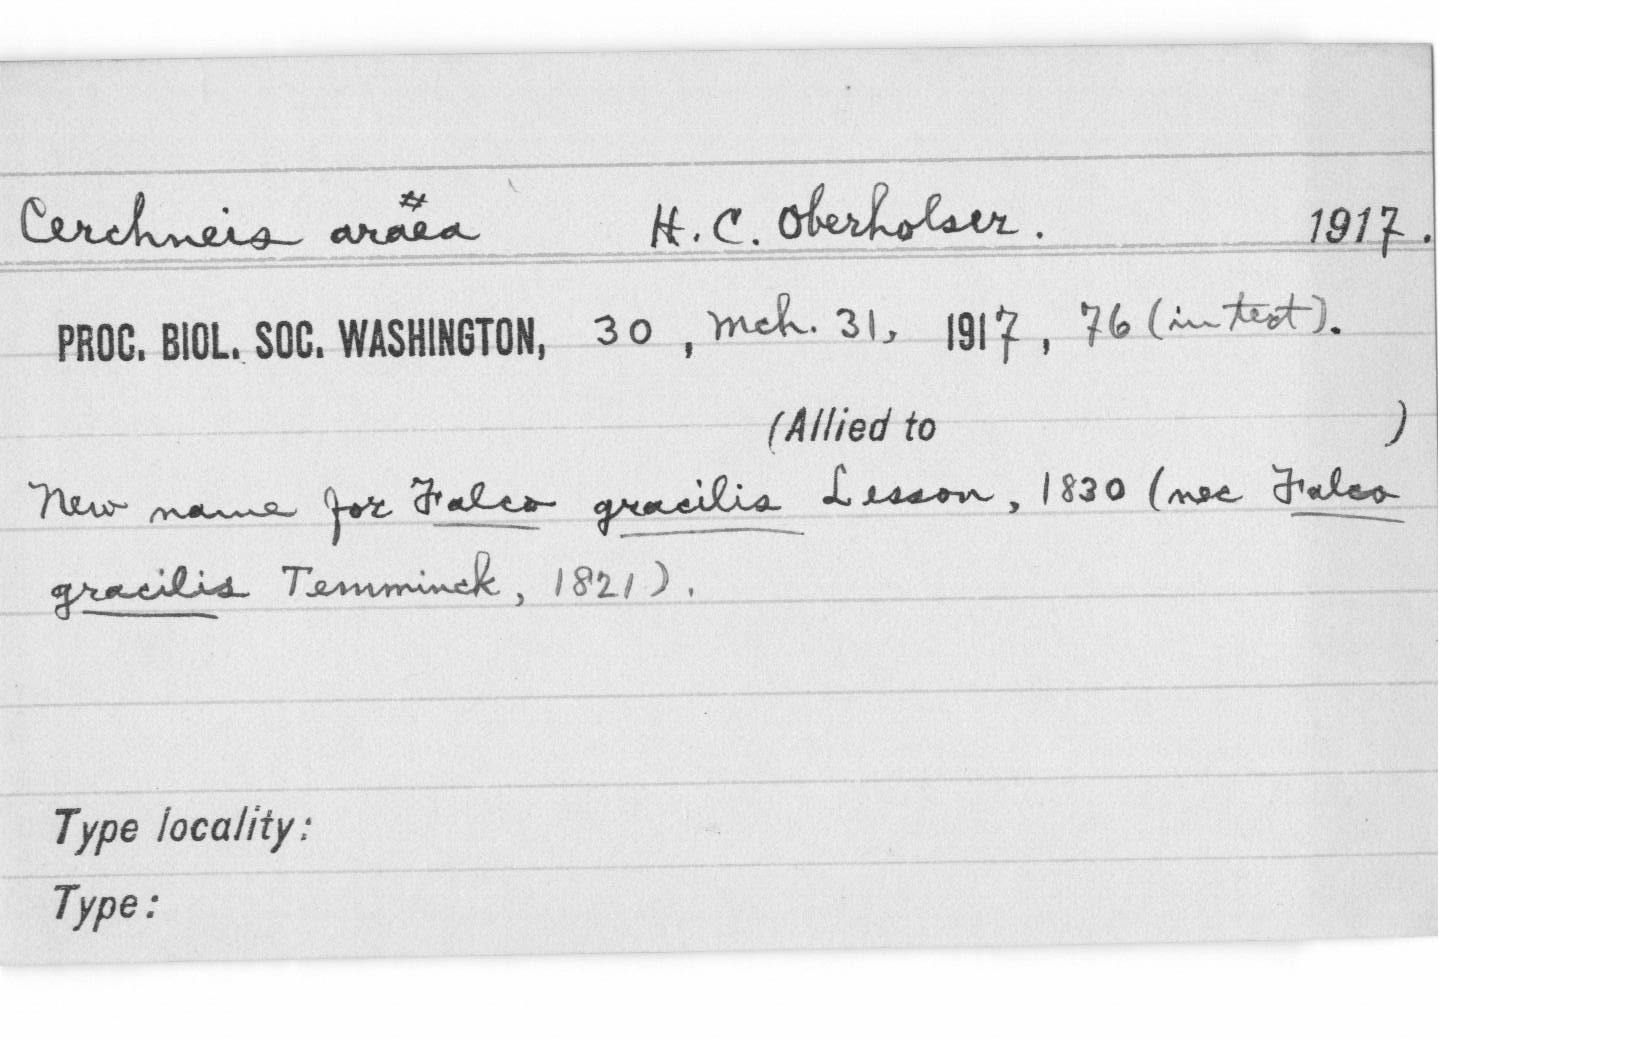 Cerchneis araëa H. C. Oberholser. 1917.
PROC. BIOL. SOC. WASHINGTON, 30, Mch. 31, 1917, 76 (in text).
(Allied to )
New name for Falco gracilis Lesson, 1830 (nec Falco
gracilis Temminck, 1821).
Type locality:
Type: